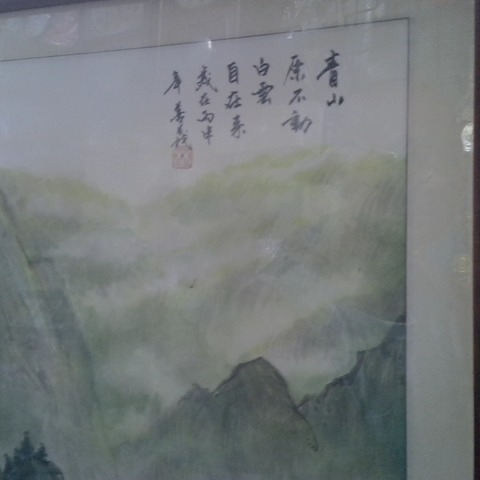 青山
原不動
白雲
自在來
歲在丙申
年善義